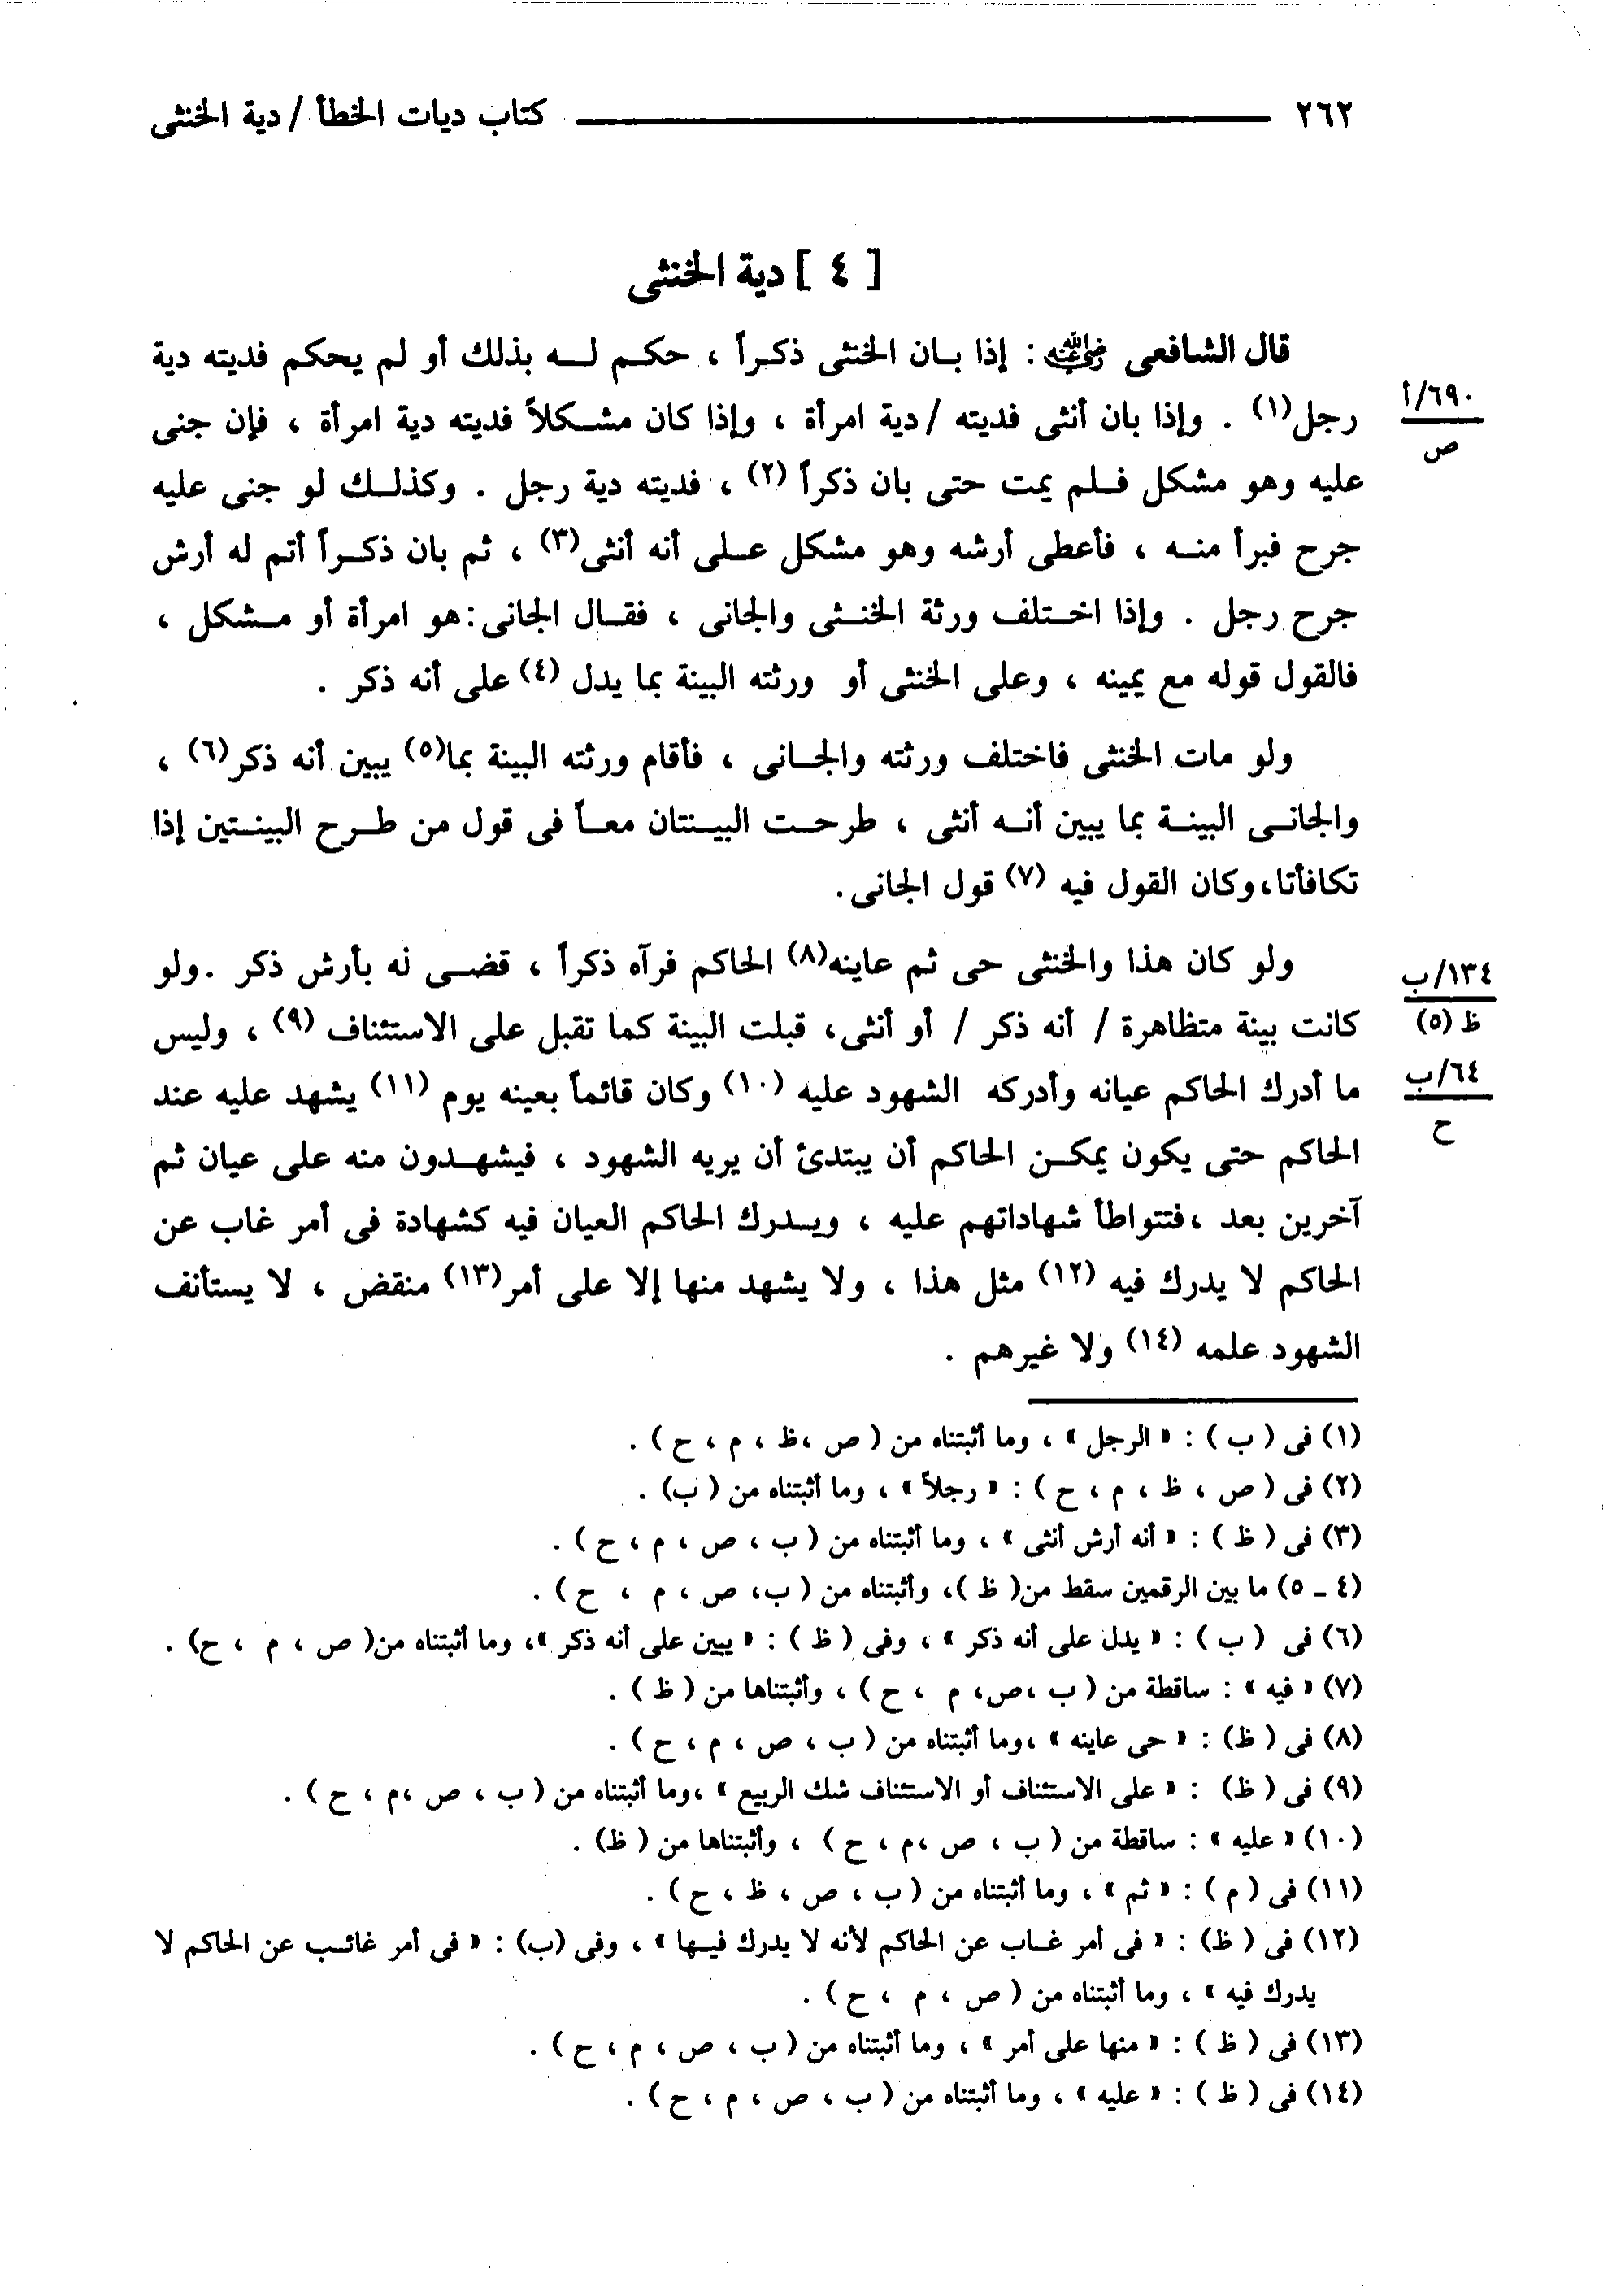 ٢٦٢ كتاب ديات الخطأ / دية الخنثى
[ ٤ ] دية الخنثى
قال الشافعى رضي الله عنه : إذا بان الخنثى ذكراً ، حكم له بذلك أو لم يحكم فديته دية
رجل(١) . وإذا بان أنثى فديته / دية امرأة ، وإذا كان مشكلاً فديته دية امرأة ، فإن جنى
٦٩٠/أ
ص
عليه وهو مشكل فلم يمت حتى بان ذكراً (٢) ، فديته دية رجل . وكذلك لو جنى عليه
جرح فبرأ منه ، فأعطى أرشه وهو مشكل على أنه أنثى(٣) ، ثم بان ذكراً أتم له أرش
جرح رجل . وإذا اختلف ورثة الخنثى والجانى ، فقال الجانى : هو امرأة أو مشكل ،
فالقول قوله مع يمينه ، وعلى الخنثى أو ورثته البينة بما يدل (٤) على أنه ذكر .
ولو مات الخنثى فاختلف ورثته والجانى ، فأقام ورثته البينة بما(٥) يبين أنه ذكر(٦) ،
والجانى البينة بما يبين أنه أنثى ، طرحت البينتان معاً فى قول من طرح البينتين إذا
تكافأتا، وكان القول فيه (٧) قول الجانى .
ولو كان هذا والخنثى حى ثم عاينه(٨) الحاكم فرآه ذكراً ، قضى له بأرش ذكر . ولو
١٣٤/ب
ظ (٥)
كانت بينة متظاهرة / أنه ذكر / أو أنثى، قبلت البينة كما تقبل على الاستئناف (٩) ، وليس
٦٤/ب
ح
ما أدرك الحاكم عيانه وأدركه الشهود عليه (١٠) وكان قائماً بعينه يوم (١١) يشهد عليه عند
الحاكم حتى يكون يمكن الحاكم أن يبتدئ أن يريه الشهود ، فيشهدون منه على عيان ثم
آخرين بعد ، فتتواطأ شهاداتهم عليه ، ويدرك الحاكم العيان فيه كشهادة فى أمر غاب عن
الحاكم لا يدرك فيه (١٢) مثل هذا ، ولا يشهد منها إلا على أمر(١٣) منقض ، لا يستأنف
الشهود علمه (١٤) ولا غيرهم .
(١) فى ( ب ) : « الرجل » ، وما أثبتناه من ( ص ،ظ ، م ، ح ) .
(٢) فى ( ص ، ظ ، م ، ح ) : « رجلاً » ، وما أثبتناه من ( ب) .
(٣) فى ( ظ ) : « أنه أرش أنثى » ، وما أثبتناه من ( ب ، ص ، م ، ح ) .
(٤ ـ ٥) ما بين الرقمين سقط من( ظ )، وأثبتناه من ( ب، ص ، م ، ح ) .
(٦) فى ( ب ) : « يدل على أنه ذكر » ، وفى ( ظ ) : « يبين على أنه ذكر »، وما أثبتناه من( ص ، م ، ح) .
(٧) « فيه » : ساقطة من ( ب ،ص، م ، ح ) ، وأثبتناها من ( ظ ) .
(٨) فى ( ظ) : « حى عاينه » ،وما أثبتناه من ( ب ، ص ، م ، ح ) .
(٩) فى ( ظ) : « على الاستئناف أو الاستئناف شك الربيع » ،وما أثبتناه من ( ب ، ص ،م ، ح ) .
(١٠) « عليه » : ساقطة من ( ب ، ص ،م ، ح ) ، وأثبتناها من ( ظ) .
(١١) فى ( م ) : « ثم » ، وما أثبتناه من ( ب ، ص ، ظ ، ح ) .
(١٢) فى ( ظ) : « فى أمر غاب عن الحاكم لأنه لا يدرك فيها » ، وفى (ب) : « فى أمر غائب عن الحاكم لا
يدرك فيه » ، وما أثبتناه من ( ص ، م ، ح ) .
(١٣) فى ( ظ ) : « منها على أمر » ، وما أثبتناه من ( ب ، ص ، م ، ح ) .
(١٤) فى ( ظ ) : « عليه » ، وما أثبتناه من ( ب ، ص ، م ، ح ) .